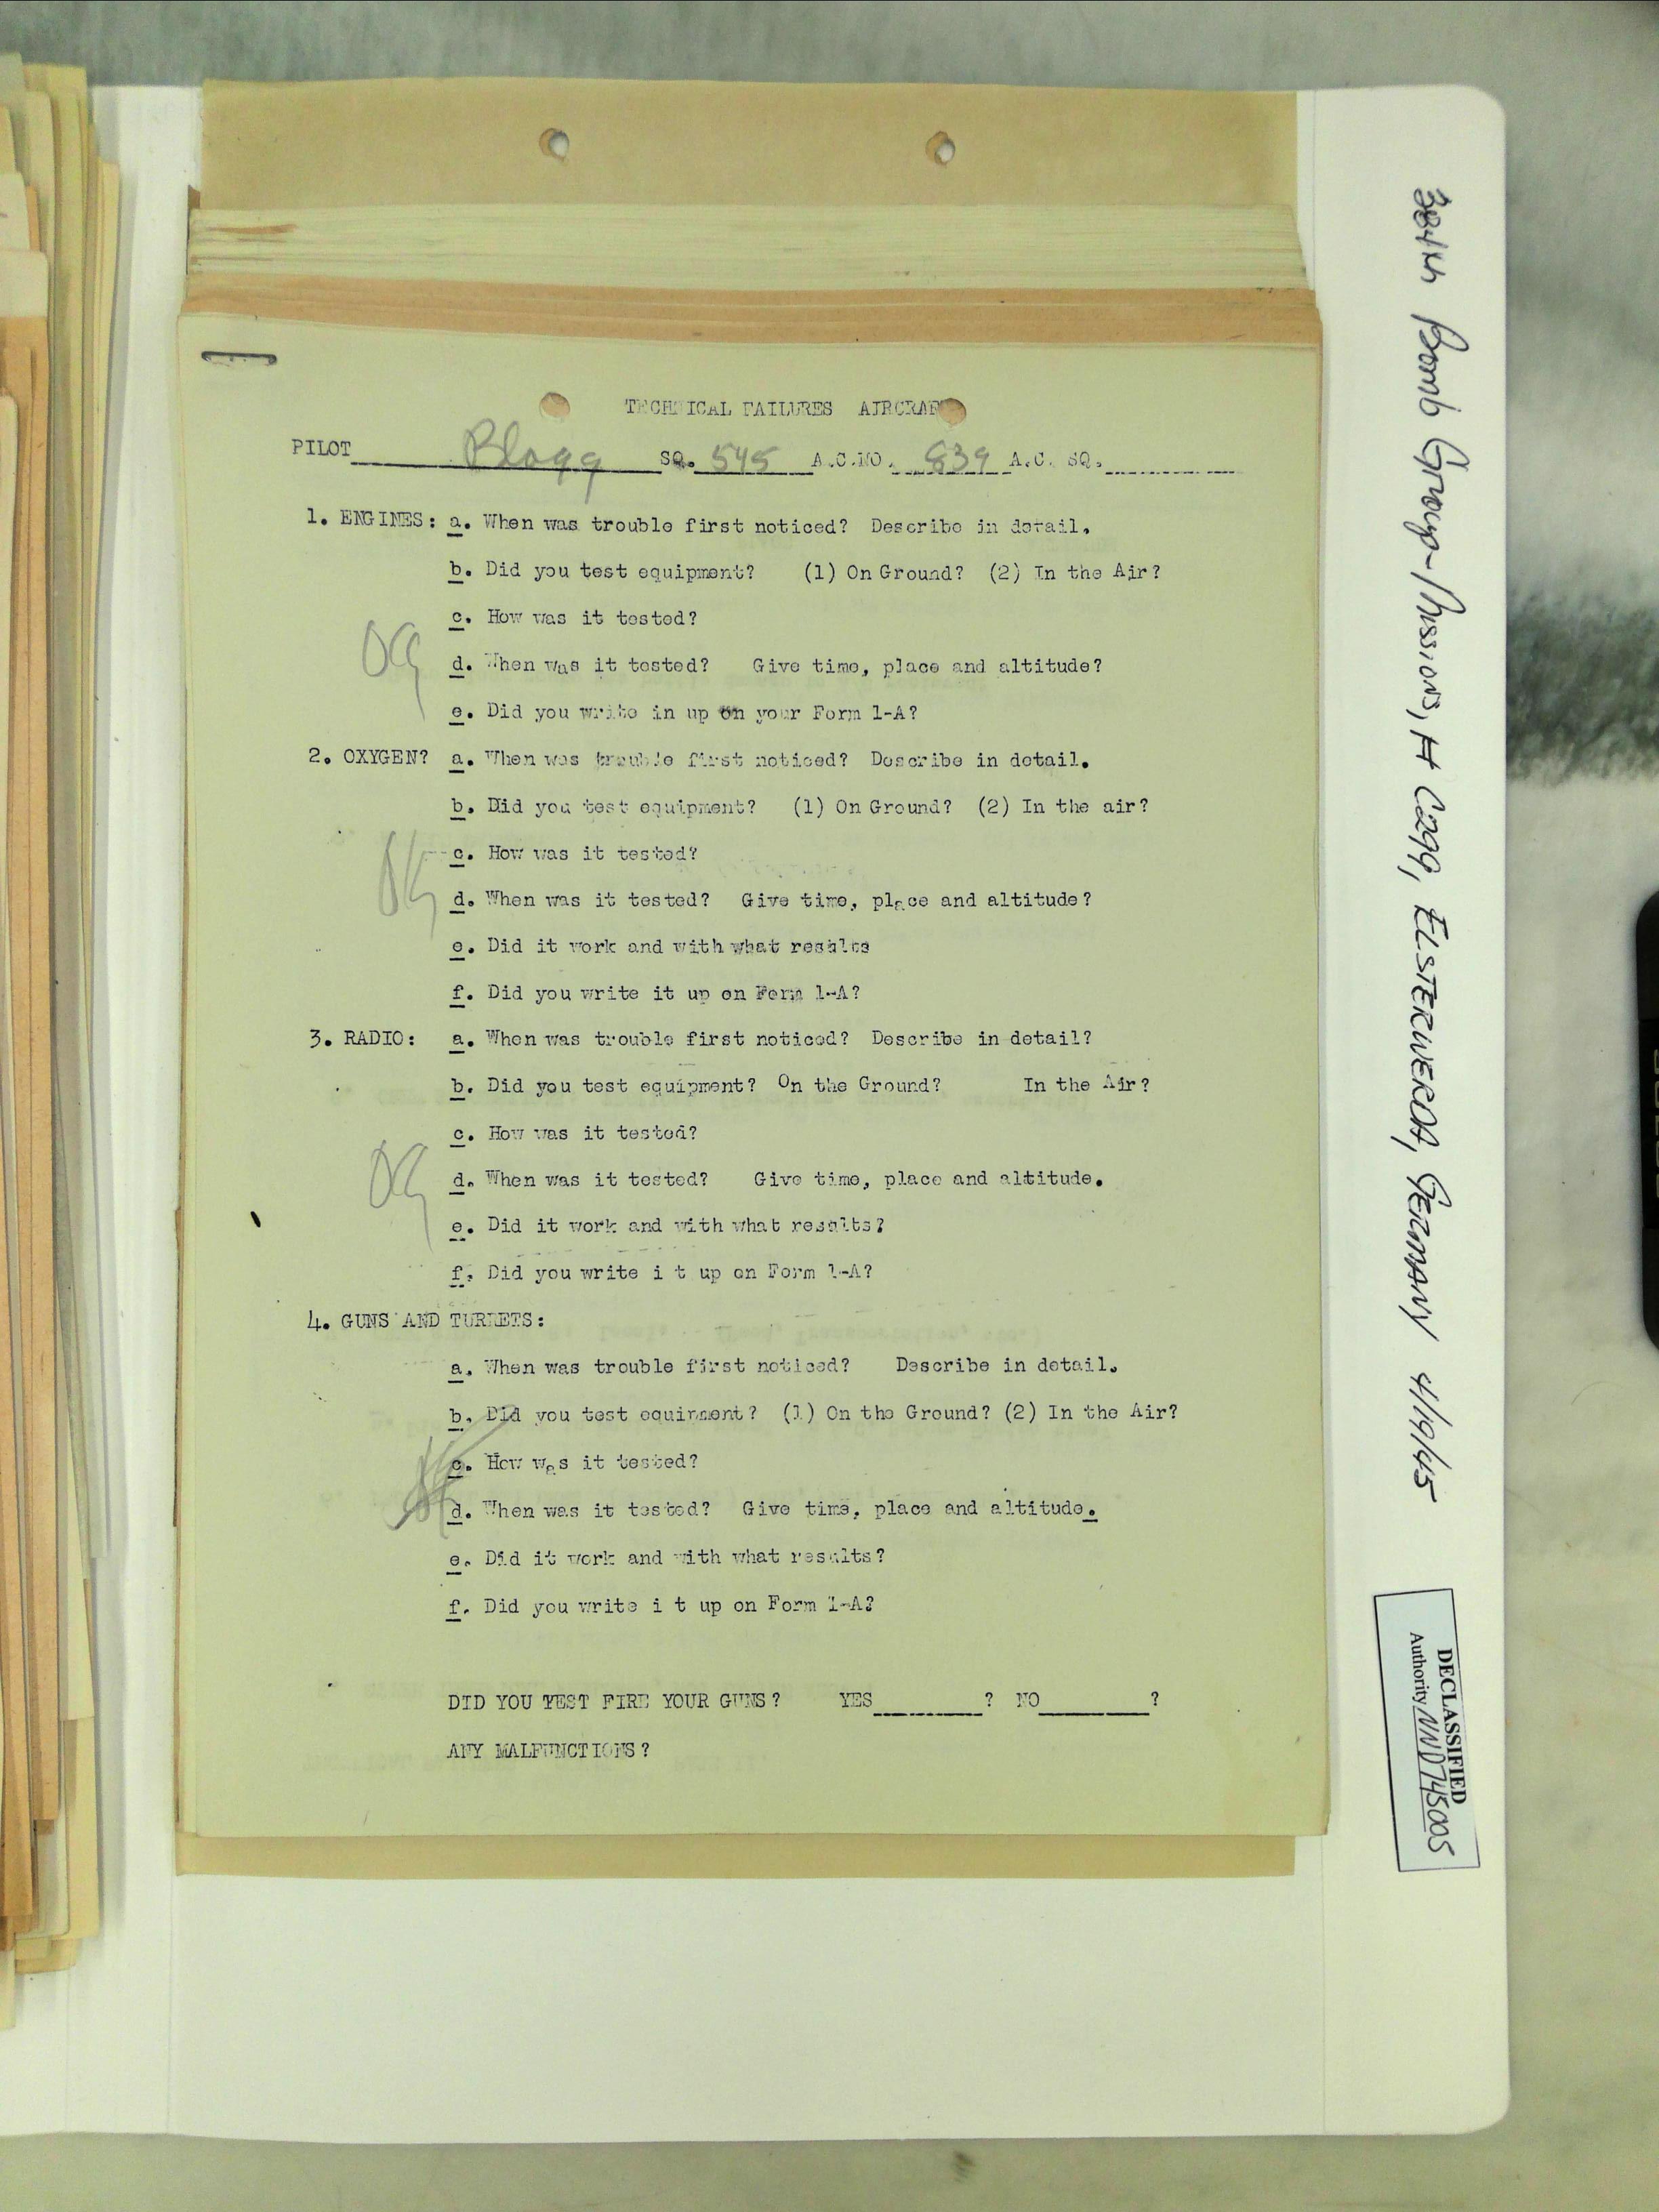 TECHNICAL FAILURES AIRCRAFT
PILOT Blogg SQ. 545 A.C.NO. 839 A.C. SQ.
1. ENGINES: a. When was trouble first noticed? Describe in detail.
b. Did you test equipment? (1) On Ground? (2) In the Air?
c. How was it tested?
OK
d. When was it tested? Give time, place and altitude?
e. Did you write in up on your Form 1-A?
2. OXYGEN? a. When was trouble first noticed? Describe in detail.
b. Did you test equipment? (1) On Ground? (2) In the air?
OK
c. How was it tested?
d. When was it tested? Give time, place and altitude?
e. Did it work and with what results
f. Did you write it up on Form 1-A?
3. RADIO: a. When was trouble first noticed? Describe in detail?
b. Did you test equipment? On the Ground? In the Air?
c. How was it tested?
OK
d. When was it tested? Give time, place and altitude.
e. Did it work and with what results?
f. Did you write i t up on Form 1-A?
4. GUNS AND TURRETS:
a. When was trouble first noticed? Describe in detail.
b. Did you test equipment? (1) On the Ground? (2) In the Air?
c. How was it tested?
d. When was it tested? Give time, place and altitude.
e. Did it work and with what results?
f. Did you write i t up on Form 1-A?
DID YOU TEST FIRE YOUR GUNS? YES ? NO ?
ANY MALFUNCTIONS?
384th Bomb Group-Missions, # C299, ELSTERWERDA, GERMANY 4/19/45
DECLASSIFIED
Authority NND745005